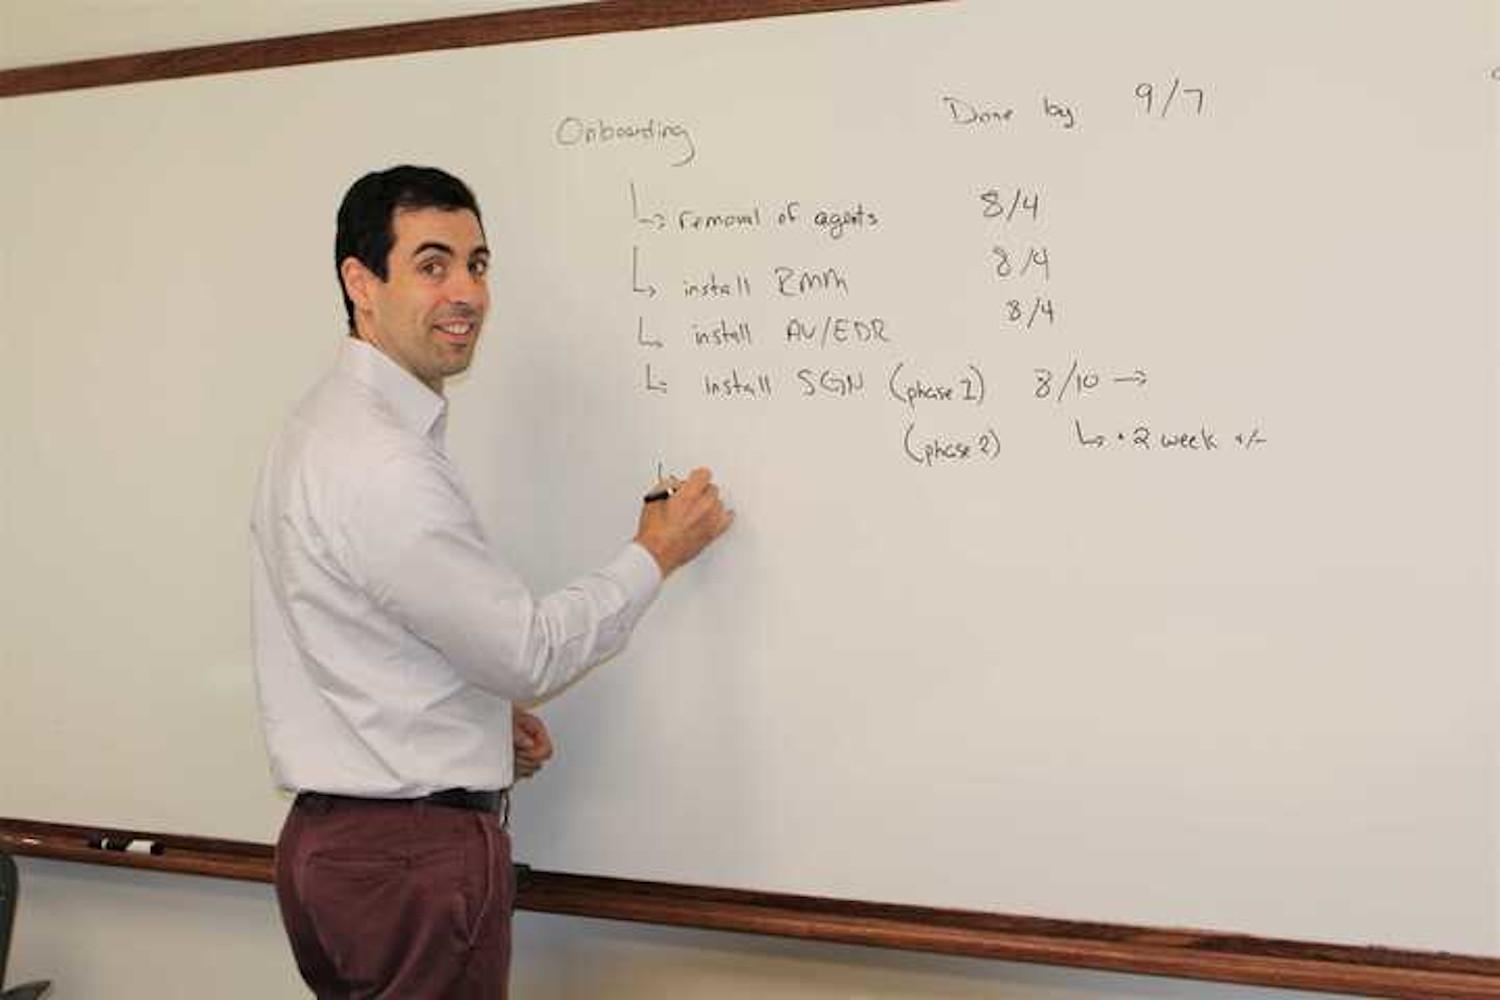 Onboarding Done by 9/7
↳ removal of agents 8/4
↳ install RMM 8/4
↳ install AV/EDR 8/4
↳ install SGN (phase 1) 8/10 →
(phase 2) ↳ • 2 week +/-